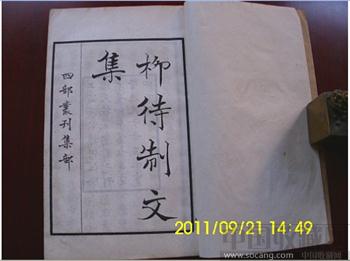 柳待制文
集
四部叢刊集部
2011/09/21 14:49
中国收藏
www.socang.com 中国收藏网